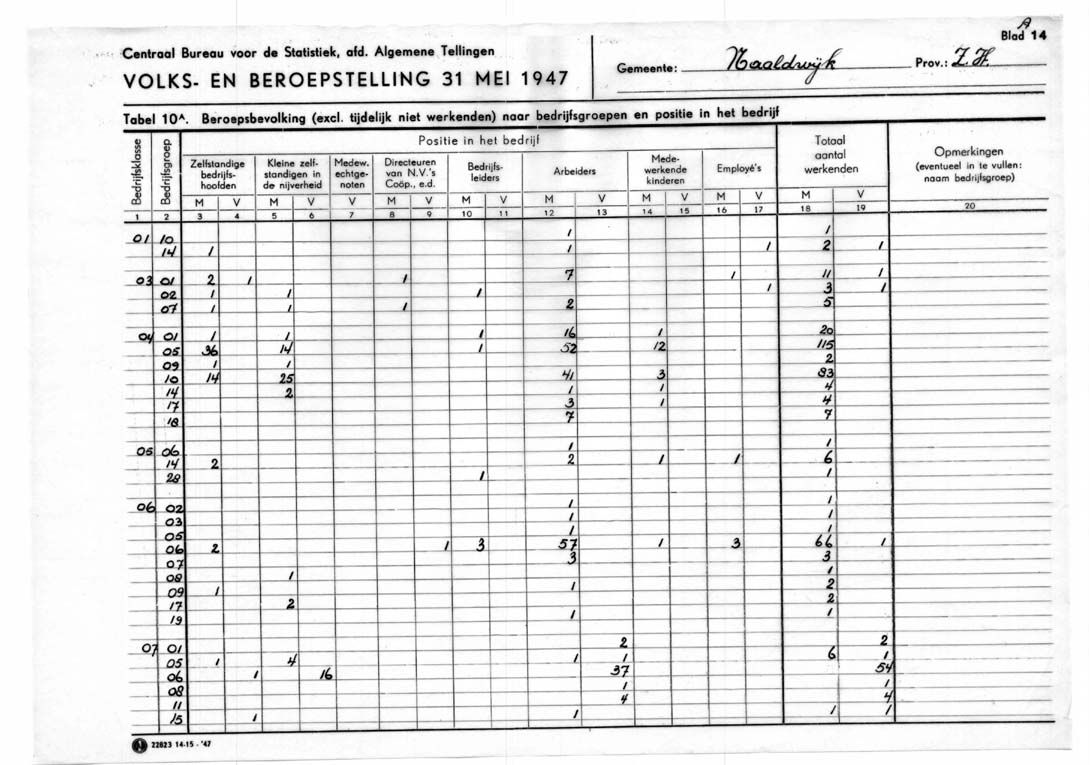 A
Blad 14
Centraal Bureau voor de Statistiek, afd. Algemene Tellingen
VOLKS- EN BEROEPSTELLING 31 MEI 1947
Gemeente: Naaldwijk Prov.: Z.H.
Tabel 10A. Beroepsbevolking (excl. tijdelijk niet werkenden) naar bedrijfsgroepen en positie in het bedrijf
Bedrijfsklasse
Bedrijfsgroep
Positie in het bedrijf
Zelfstandige bedrijfs- hoofden
Kleine zelf- standigen in de nijverheid
Medew. echtge- noten
Directeuren van N.V.'s Coöp., e.d.
Bedrijfs- leiders
Arbeiders
Mede- werkende kinderen
Employé's
Totaal aantal werkenden
Opmerkingen (eventueel in te vullen: naam bedrijfsgroep)
M V M V V M V M V M V M V M V M V
1 2 3 4 5 6 7 8 9 10 11 12 13 14 15 16 17 18 19 20
01 10 1 1
14 1 1 1 2 1
03 01 2 1 1 7 1 11 1
02 1 1 1 1 3 1
07 1 1 1 2 5
04 01 1 1 1 16 1 20
05 36 14 1 52 12 115
09 1 1 2
10 14 25 41 3 83
14 2 1 1 4
17 3 1 4
18 7 7
05 06 1 1
14 2 2 1 1 6
28 1 1
06 02 1 1
03 1 1
05 1 1
06 2 1 3 57 1 3 66 1
07 3 3
08 1 1
09 1 1 2
17 2 2
19 1 1
07 01 2 2
05 1 4 1 1 6 1
06 1 16 37 54
08 1 1
11 4 4
15 1 1 1 1
22823 14-15 - '47